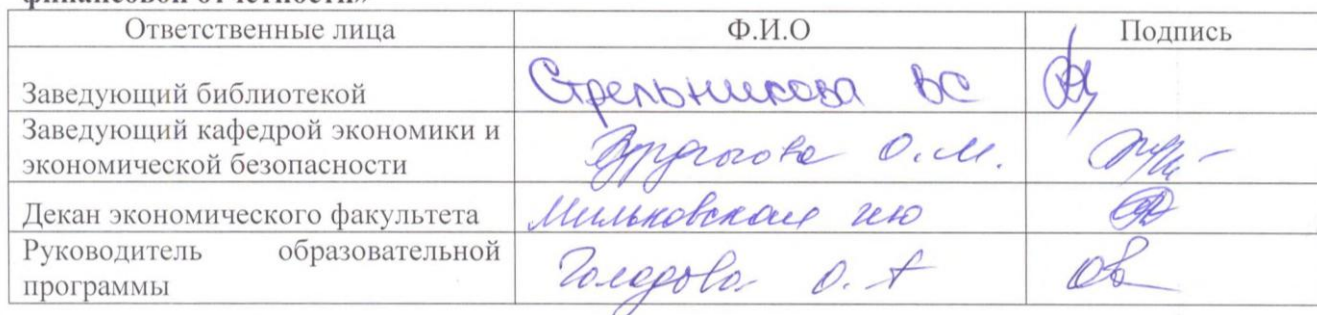 финансовой отчетности»
Ответственные лица Ф.И.О Подпись
Заведующий библиотекой Стрельникова ВС
Заведующий кафедрой экономики и
экономической безопасности О.М.
Декан экономического факультета Мильковская
Руководитель образовательной
программы О.А